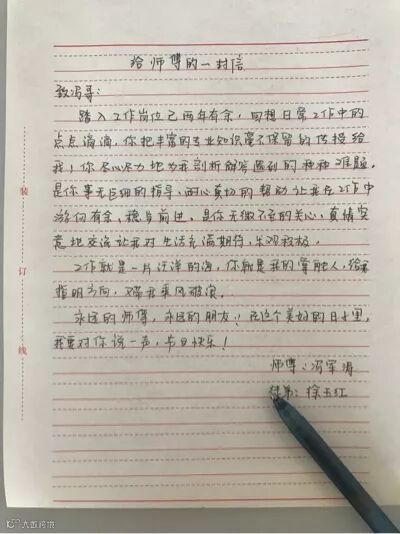 给师傅的一封信
敬冯哥：
踏入工作岗位已两年有余，回想日常工作中的
点点滴滴，你把丰富的专业知识毫不保留的传授给
我；你尽心尽力地为我剖析解答遇到的种种难题。
是你事无巨细的指导，耐心真切的帮助让我在工作中
游刃有余、稳步前进。是你无微不至的关心，真情实
意地交流让我对生活充满期待，乐观积极。
工作就是一片汪洋的海，你就是我的掌舵人，给我
指明方向，带我乘风破浪。
永远的师傅，永远的朋友！在这个美好的日子里，
我要对你说一声，节日快乐！
师傅：冯军海
徒弟：徐玉红
装
订
线
大图跨境